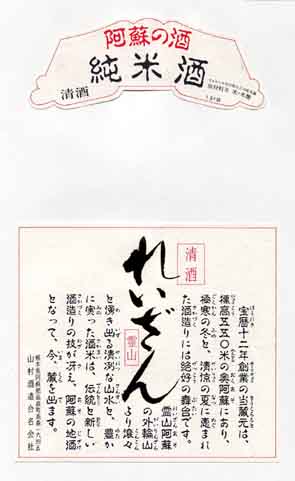 阿蘇の酒
純米酒
清酒
清酒
れいざん
霊山
宝暦十二年創業の当蔵元は、
標高五五〇米の奥阿蘇にあり、
極寒の冬と、清涼の夏に恵まれ
た酒造りには絶好の舞台です。
霊山阿蘇
の外輪山
より滾々
と湧き出る清冽な山水と、豊か
に実った酒米は、伝統と新しい
酒造りの技が冴え、阿蘇の地酒
となって、今、蔵を出ます。
山村酒造合名会社